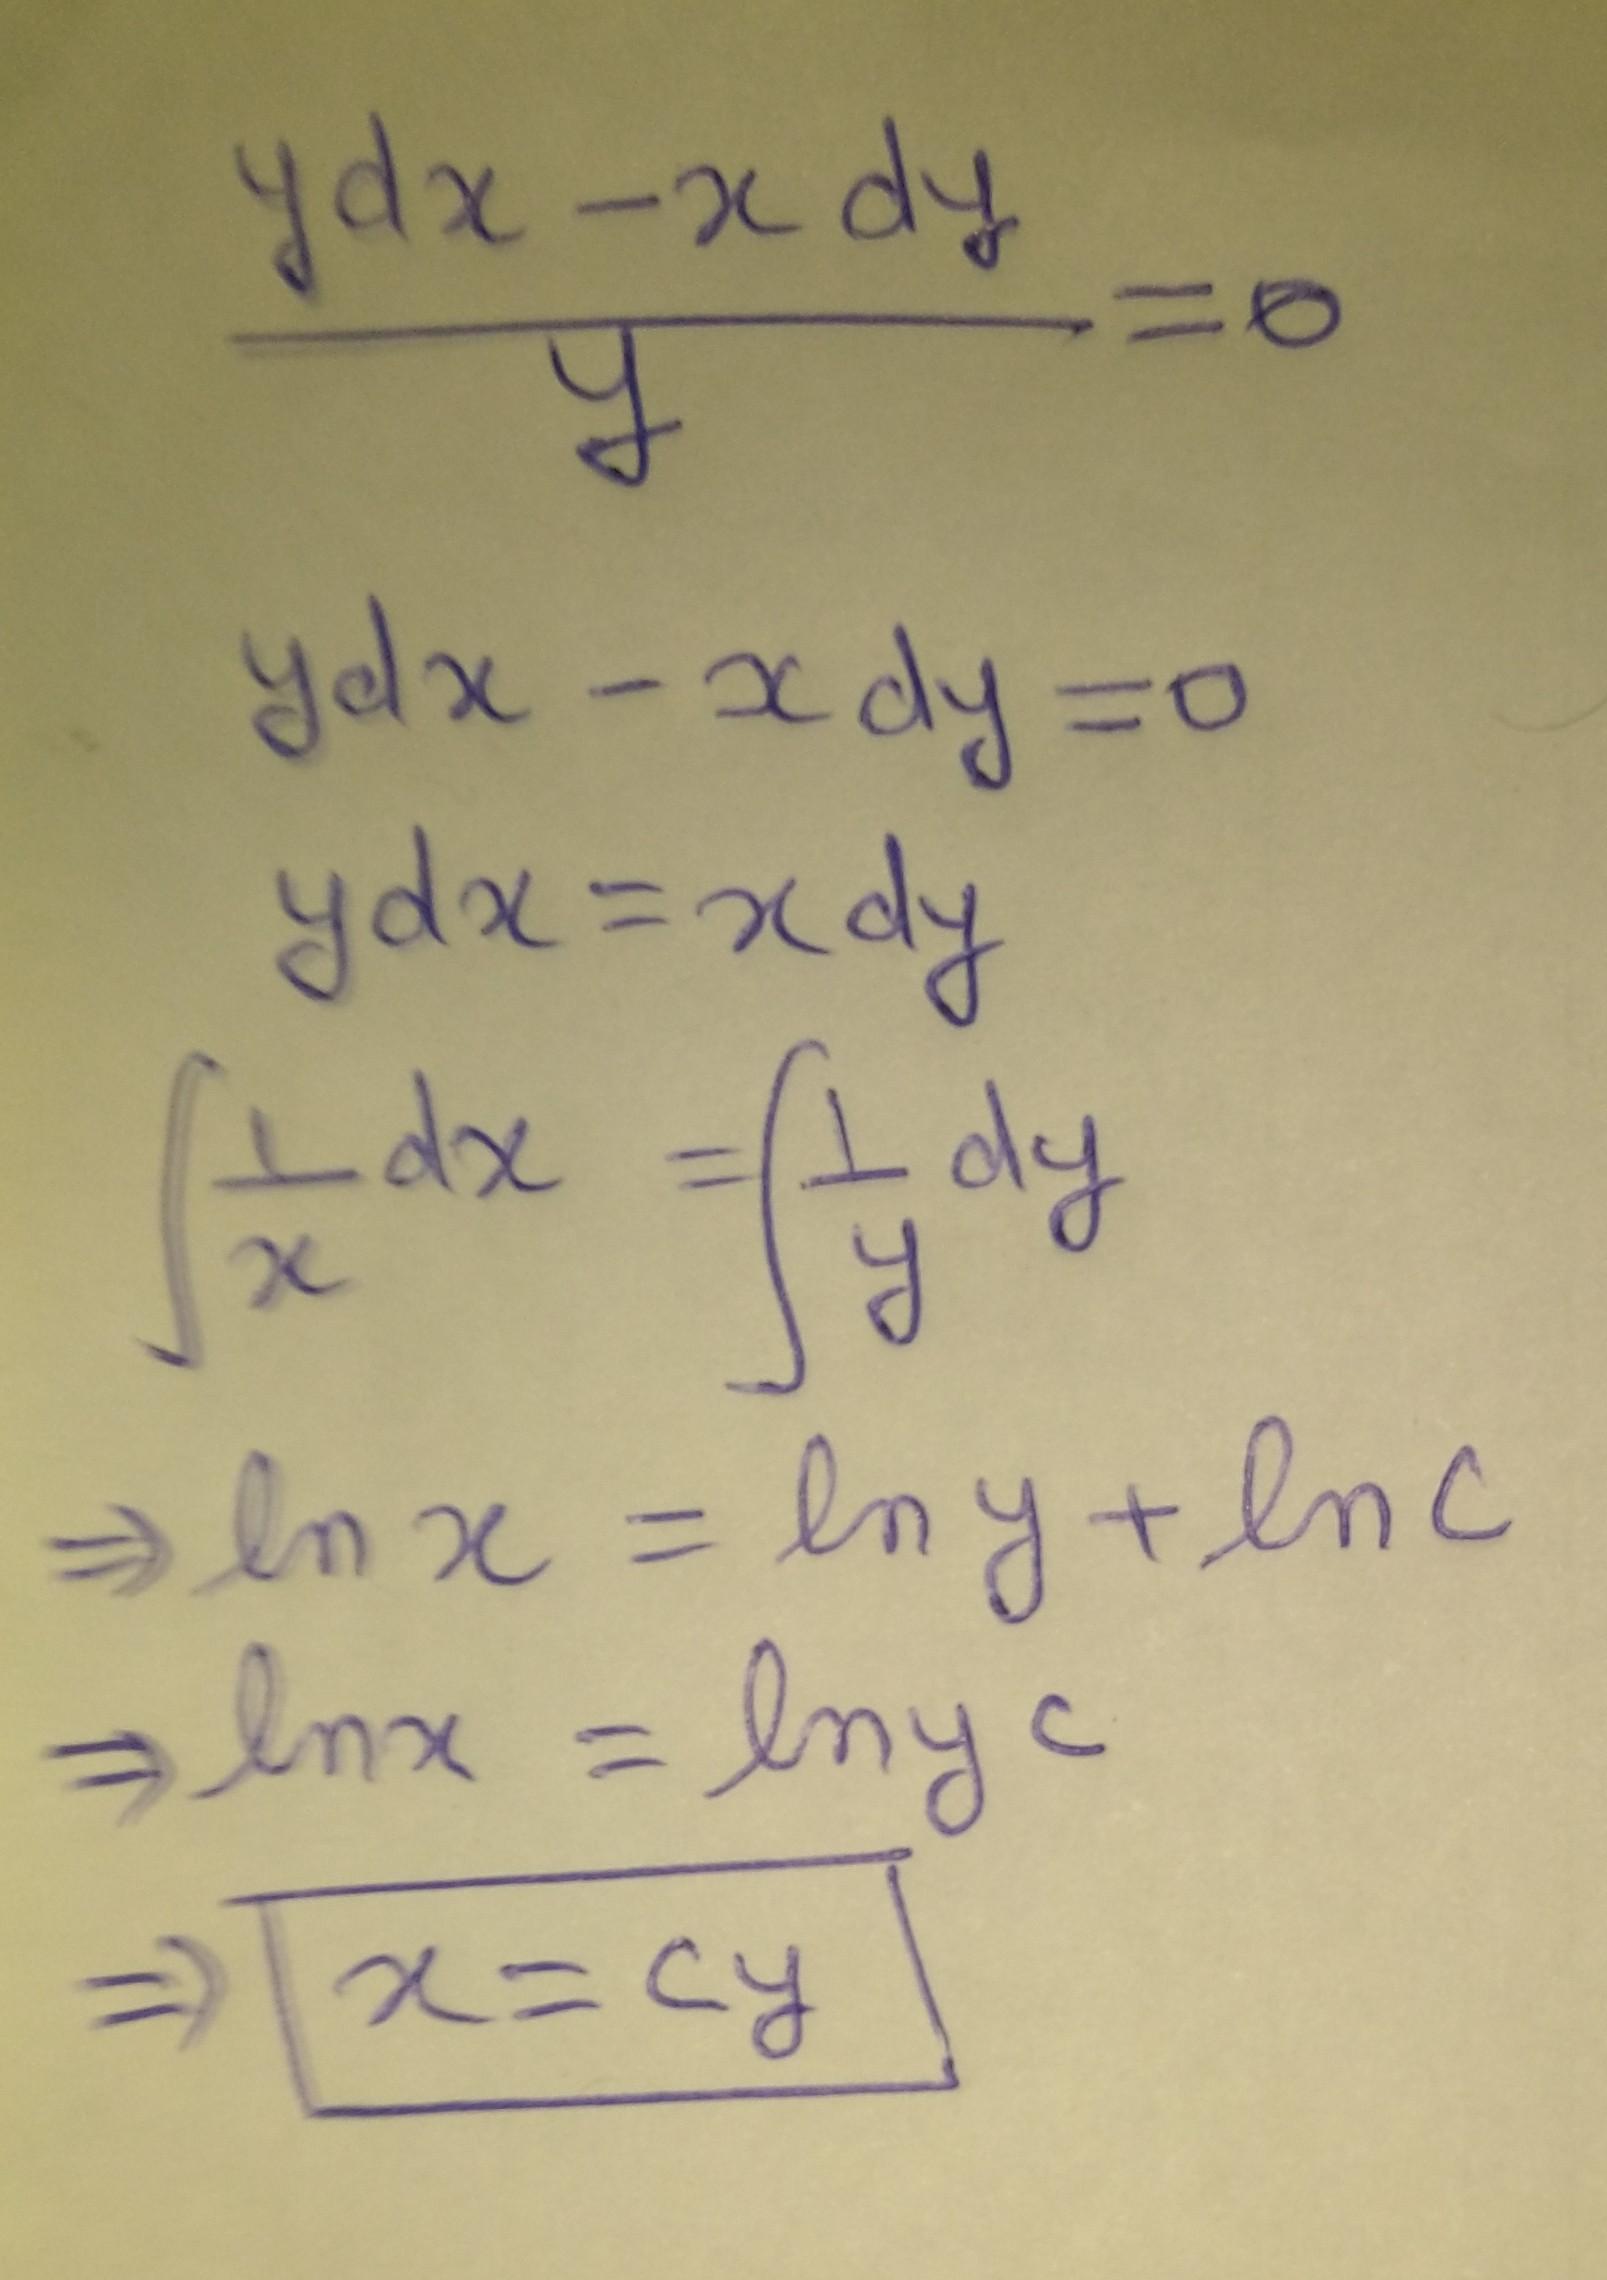 ydx - x dy / y = 0
ydx - x dy = 0
ydx = x dy
∫ 1/x dx = ∫ 1/y dy
⇒ ln x = ln y + ln C
⇒ ln x = ln y c
⇒ x = cy